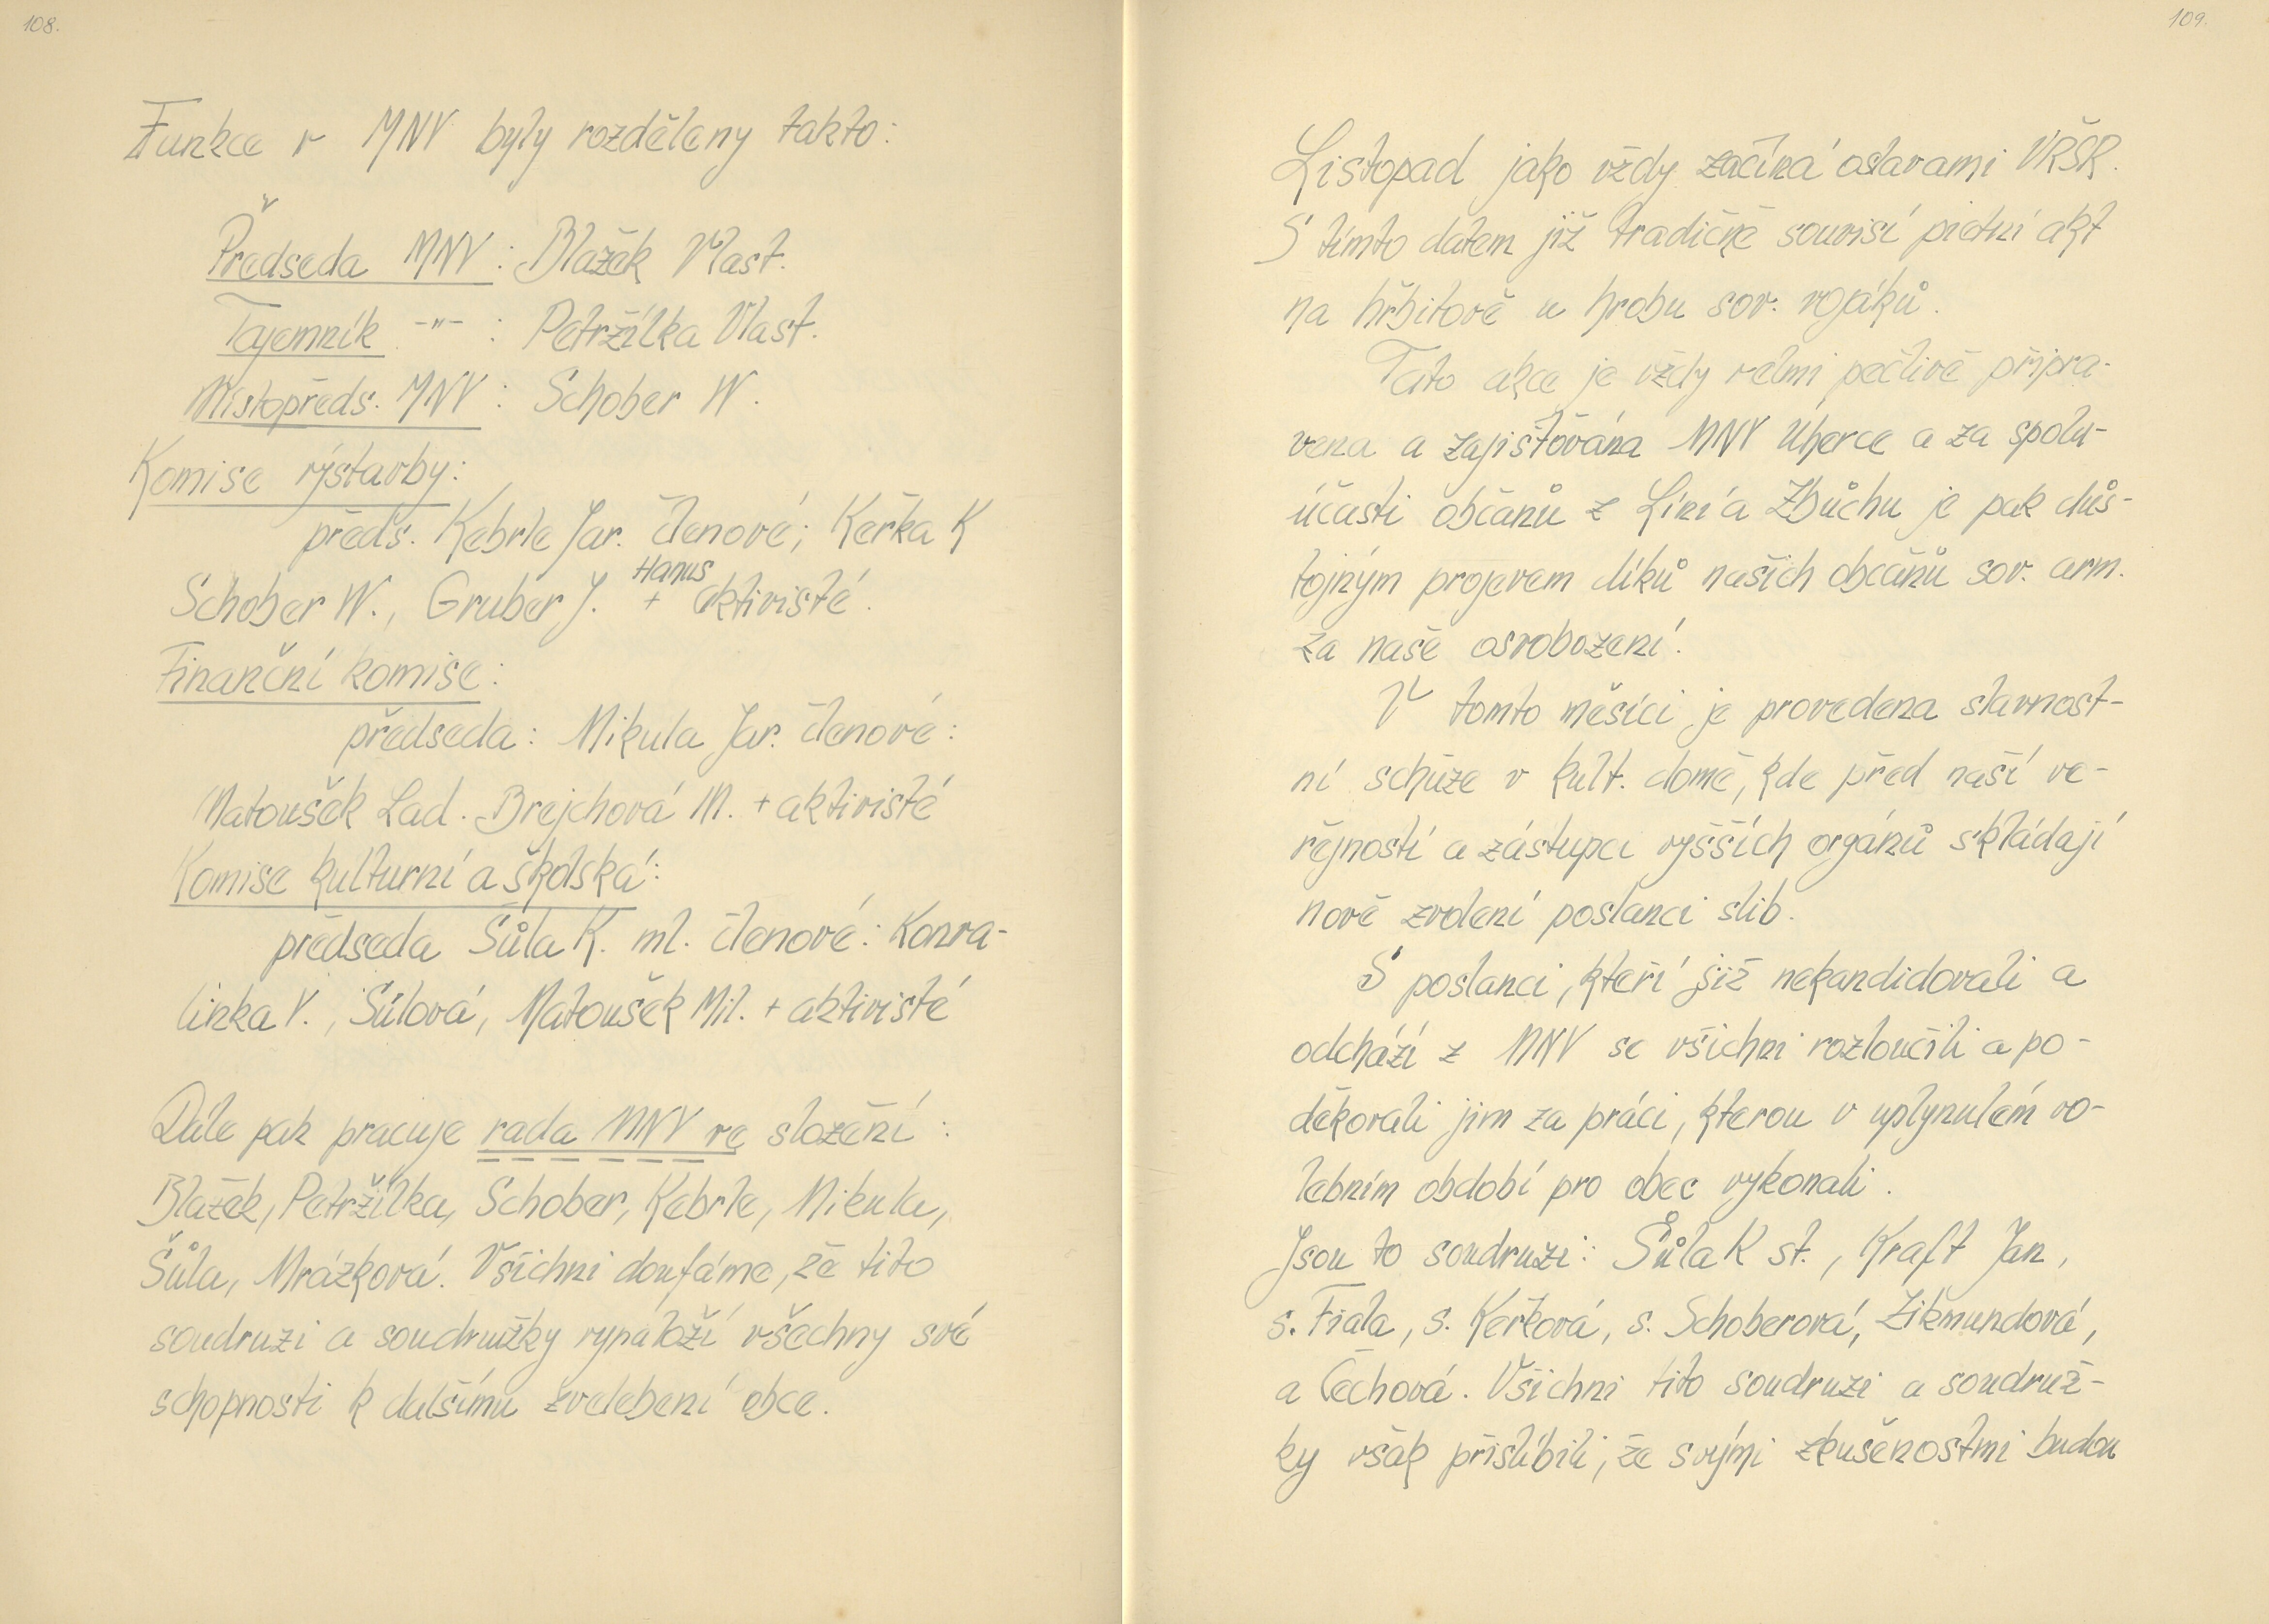 108.
Funkce v MNV byly rozděleny takto:
Předseda MNV: Blažek Vlast.
Tajemník -"- : Petržílka Vlast.
Místopředs. MNV: Schober W.
Komise výstavby:
předs. Kebrle Jar. členové; Keřka K
Hanus
Schober W., Gruber J. + aktivisté.
Finanční komise:
předseda: Mikula Jar. členové:
Matoušek Lad. Brejchová M. + aktivisté
Komise kulturní a školská:
předseda Šůla K. ml. členové: Konva-
linka V., Šůlová, Matoušek Mil. + aktivisté
Dále pak pracuje rada MNV ve složení:
Blažek, Petržílka, Schober, Kebrle, Mikula,
Šůla, Mrázková. Všichni doufáme, že tito
soudruzi a soudružky vynaloží všechny své
schopnosti k dalšímu zvelebení obce.
109.
Listopad jako vždy začíná oslavami VŘSR.
S tímto datem již tradičně souvisí pietní akt
na hřbitově u hrobu sov. vojáků.
Tato akce je vždy velmi pečlivě připra-
vena a zajišťována MNV Úherce a za spolu-
účasti občanů z Líní a Zbůchu je pak důs-
tojným projevem díků našich občanů sov. arm.
za naše osvobození.
V tomto měsíci je provedena slavnost-
ní schůze v kult. domě, kde před naší ve-
řejností a zástupci vyšších orgánů skládají
nově zvolení poslanci slib.
S poslanci, kteří již nekandidovali a
odchází z MNV se všichni rozloučili a po-
děkovali jim za práci, kterou v uplynulém vo-
lebním období pro obec vykonali.
Jsou to soudruzi: Šůla K st., Kraft Jan,
s. Fiala, s. Keřková, s. Schoberová, Zikmundová,
a Čechová. Všichni tito soudruzi a soudruž-
ky však přislíbili, že svými zkušenostmi budou